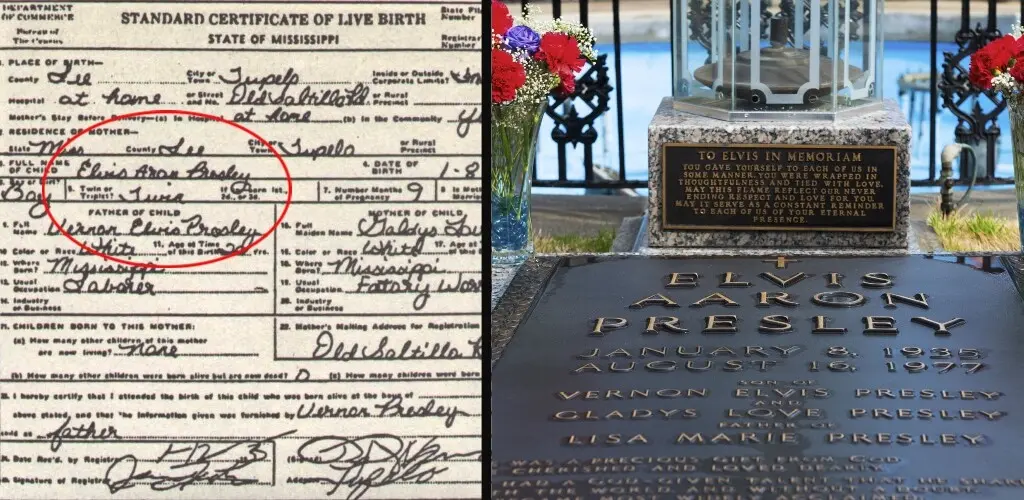 DEPARTMENT
OF COMMERCE
Bureau of
The Census
STANDARD CERTIFICATE OF LIVE BIRTH
STATE OF MISSISSIPPI
State File
Number
Registrar
Number
PLACE OF BIRTH—
County Lee City or Town Tupelo Inside or Outside Corporate Limits?
Hospital at home or Street and No. Old Saltillo Rd or Rural Precinct
Mother's Stay Before Delivery—(a) In Hospital at home (b) In the Community
RESIDENCE OF MOTHER—
State Miss County Lee City or Town Tupelo or Rural Precinct
FULL NAME OF CHILD Elvis Aron Presley 4. DATE OF BIRTH 1-8
Boy 5. Twin or Triplet? Twin If Born 1st, 2d., or 3d. 7. Number Months of Pregnancy 9 8. Is Mother
FATHER OF CHILD
Full Name Vernon Elvis Presley
Color or Race White 11. Age at Time of this Birth Yrs.
Where Born? Mississippi
Usual Occupation Laborer
14. Industry or Business
MOTHER OF CHILD
16. Full Maiden Name Gladys
Color or Race White 17. Age at
Where Born? Mississippi
Usual Occupation Factory
20. Industry or Business
21. CHILDREN BORN TO THIS MOTHER:
(a) How many other children of this mother are now living? none
(b) How many other children were born alive but are now dead? 0 (c) How many children were born
22. Mother's Mailing Address for Registration
Old Saltillo R
I hereby certify that I attended the birth of this child who was born alive at the hour of
above stated, and that the information given was furnished by Vernon Presley
as father
24. Date Rec'd. by Registrar
Signature of Registrar
(Signed)
Address Tupelo
TO ELVIS IN MEMORIAM
YOU GAVE YOURSELF TO EACH OF US IN
SOME MANNER. YOU WERE WRAPPED IN
THOUGHTFULNESS AND TIED WITH LOVE.
MAY THIS FLAME REFLECT OUR NEVER
ENDING RESPECT AND LOVE FOR YOU.
MAY IT SERVE AS A CONSTANT REMINDER
TO EACH OF US OF YOUR ETERNAL
PRESENCE.
ELVIS
AARON
PRESLEY
JANUARY 8, 1935
AUGUST 16, 1977
SON OF
VERNON ELVIS PRESLEY
AND
GLADYS LOVE PRESLEY
FATHER OF
LISA MARIE PRESLEY
HE WAS A PRECIOUS GIFT FROM GOD
CHERISHED AND LOVED DEARLY.
HE HAD A GOD-GIVEN TALENT THAT HE SHARED
THE WORLD